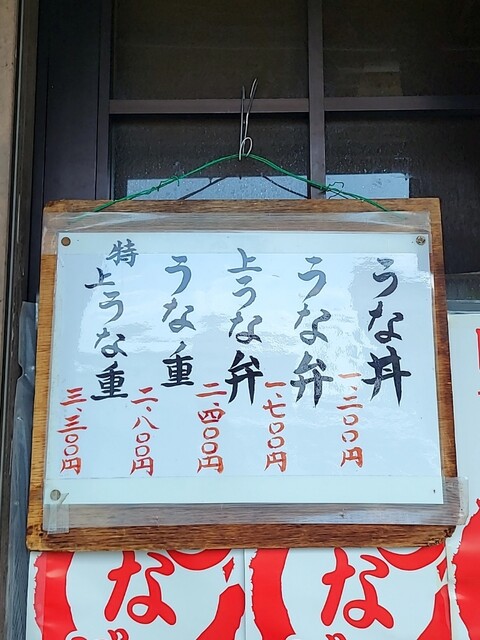 うな丼
一、三〇〇円
うな弁
一、七〇〇円
上うな弁
二、四〇〇円
うな重
二、八〇〇円
特上うな重
三、三〇〇円
な
な